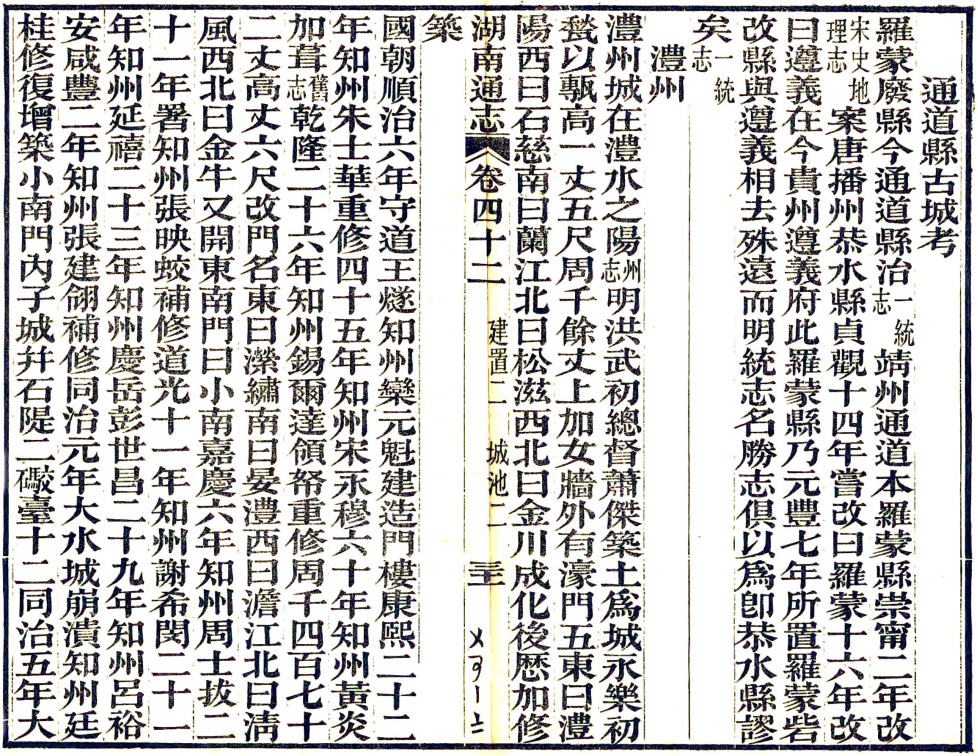 通道縣古城考
羅蒙廢縣今通道縣治一統志靖州通道本羅蒙縣崇甯二年改
宋史地理志案唐播州恭水縣貞觀十四年嘗改曰羅蒙十六年改
曰遵義在今貴州遵義府此羅蒙縣乃元豐七年所置羅蒙砦
改縣與遵義相去殊遠而明統志名勝志俱以爲卽恭水縣謬
矣一統志
澧州
澧州城在澧水之陽州志明洪武初總督蕭傑築土爲城永樂初
甃以甎高一丈五尺周千餘丈上加女牆外有濠門五東曰澧
陽西曰石慈南曰蘭江北曰松滋西北曰金川成化後歷加修
湖南通志 卷四十二 建置二 城池二 三十
築
國朝順治六年守道王燧知州欒元魁建造門樓康熙二十二
年知州朱士華重修四十五年知州宋永穆六十年知州黃炎
加葺舊志乾隆二十六年知州錫爾達領帑重修周千四百七十
二丈高丈六尺改門名東曰瀠繡南曰晏澧西曰澹江北曰淸
風西北曰金牛又開東南門曰小南嘉慶六年知州周士拔二
十一年署知州張映蛟補修道光十一年知州謝希閔二十一
年知州延禧二十三年知州慶岳彭世昌二十九年知州呂裕
安咸豐二年知州張建翎補修同治元年大水城崩潰知州廷
桂修復增築小南門內子城幷石隄二礮臺十二同治五年大